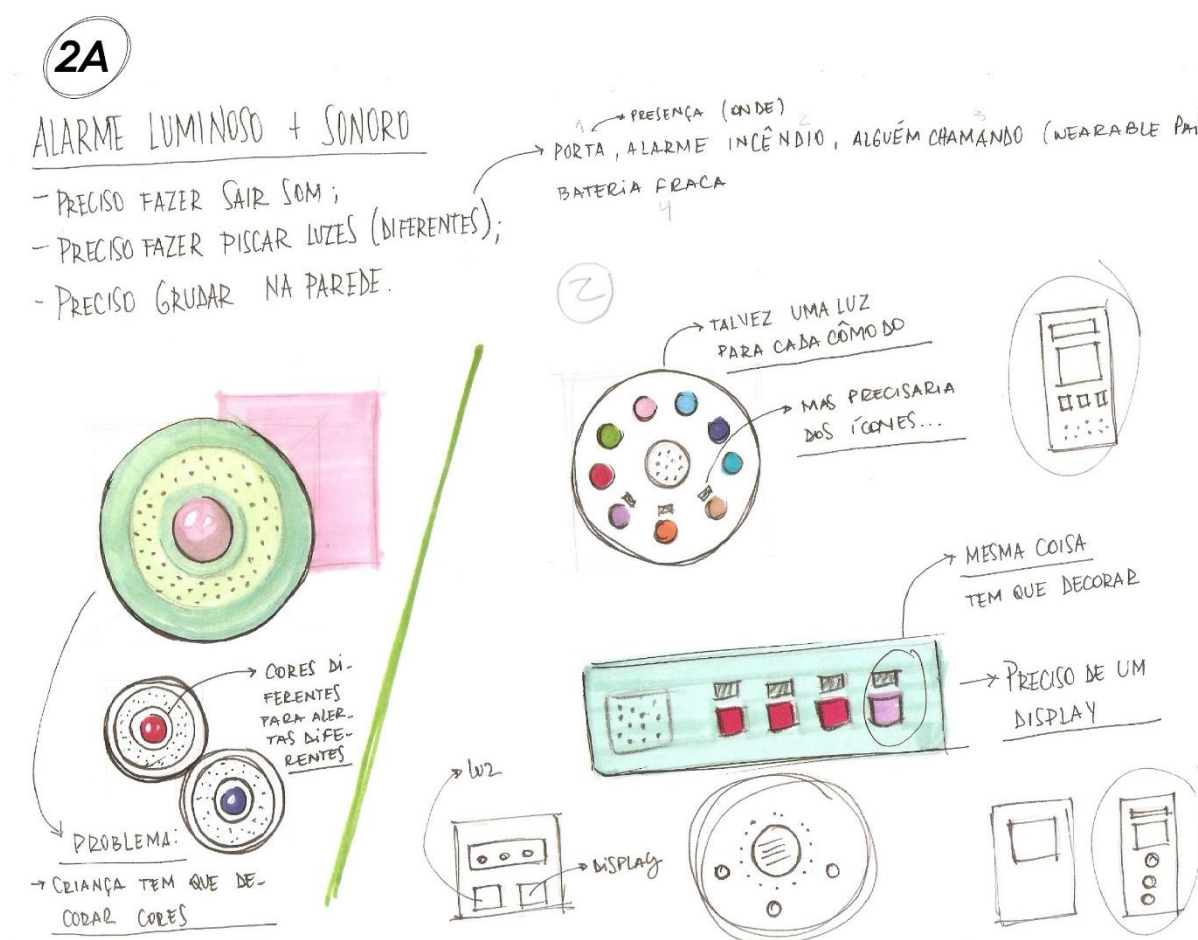 2A
ALARME LUMINOSO + SONORO
- PRECISO FAZER SAIR SOM;
- PRECISO FAZER PISCAR LUZES (DIFERENTES);
- PRECISO GRUDAR NA PAREDE.
1 PRESENÇA (ONDE) 2 3
PORTA, ALARME INCÊNDIO, ALGUÉM CHAMANDO (WEARABLE
BATERIA FRACA
4
2
TALVEZ UMA LUZ
PARA CADA CÔMODO
MAS PRECISARIA
DOS ÍCONES...
MESMA COISA
TEM QUE DECORAR
PRECISO DE UM
DISPLAY
CORES DI-
FERENTES
PARA ALER-
TAS DIFE-
RENTES
PROBLEMA:
CRIANÇA TEM QUE DE-
CORAR CORES
LUZ
DISPLAY